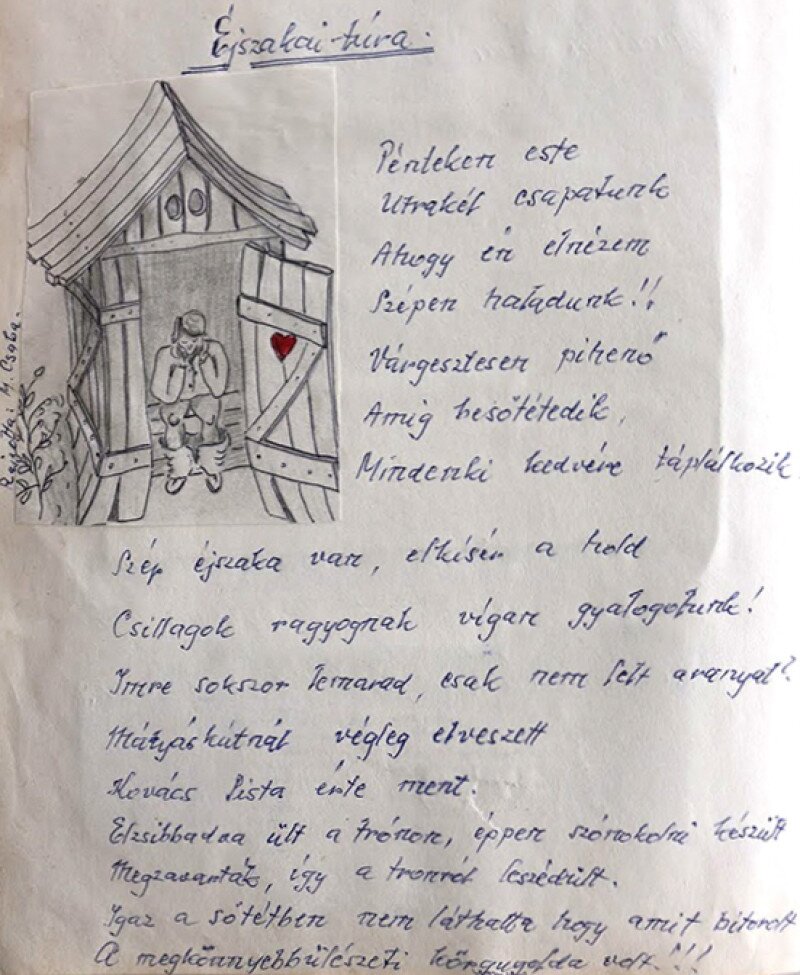 Éjszakai-túra.
Pénteken este
Utrakél csapatunk
Ahogy én elnézem
Szépen haladunk!!
Várgesztesen pihenő
Amig besőtétedik,
Mindenki kedvére táplálkozik.
Rajzolta: M. Csaba.
Szép éjszaka van, elkisér a hold
Csillagok ragyognak vígan gyalogolunk!
Imre sokszor lemarad, csak nem lelt aranyat?
Mátyáskútnál végleg elveszett
Kovács Pista érte ment.
Elzsibbadva ült a trónon, éppen szónokolni készült
Megzavarták, így a tronról leszédült.
Igaz a sötétben nem láthatta hogy amit bitorolt
A megkönnyebbülészeti körgugolda volt!!!